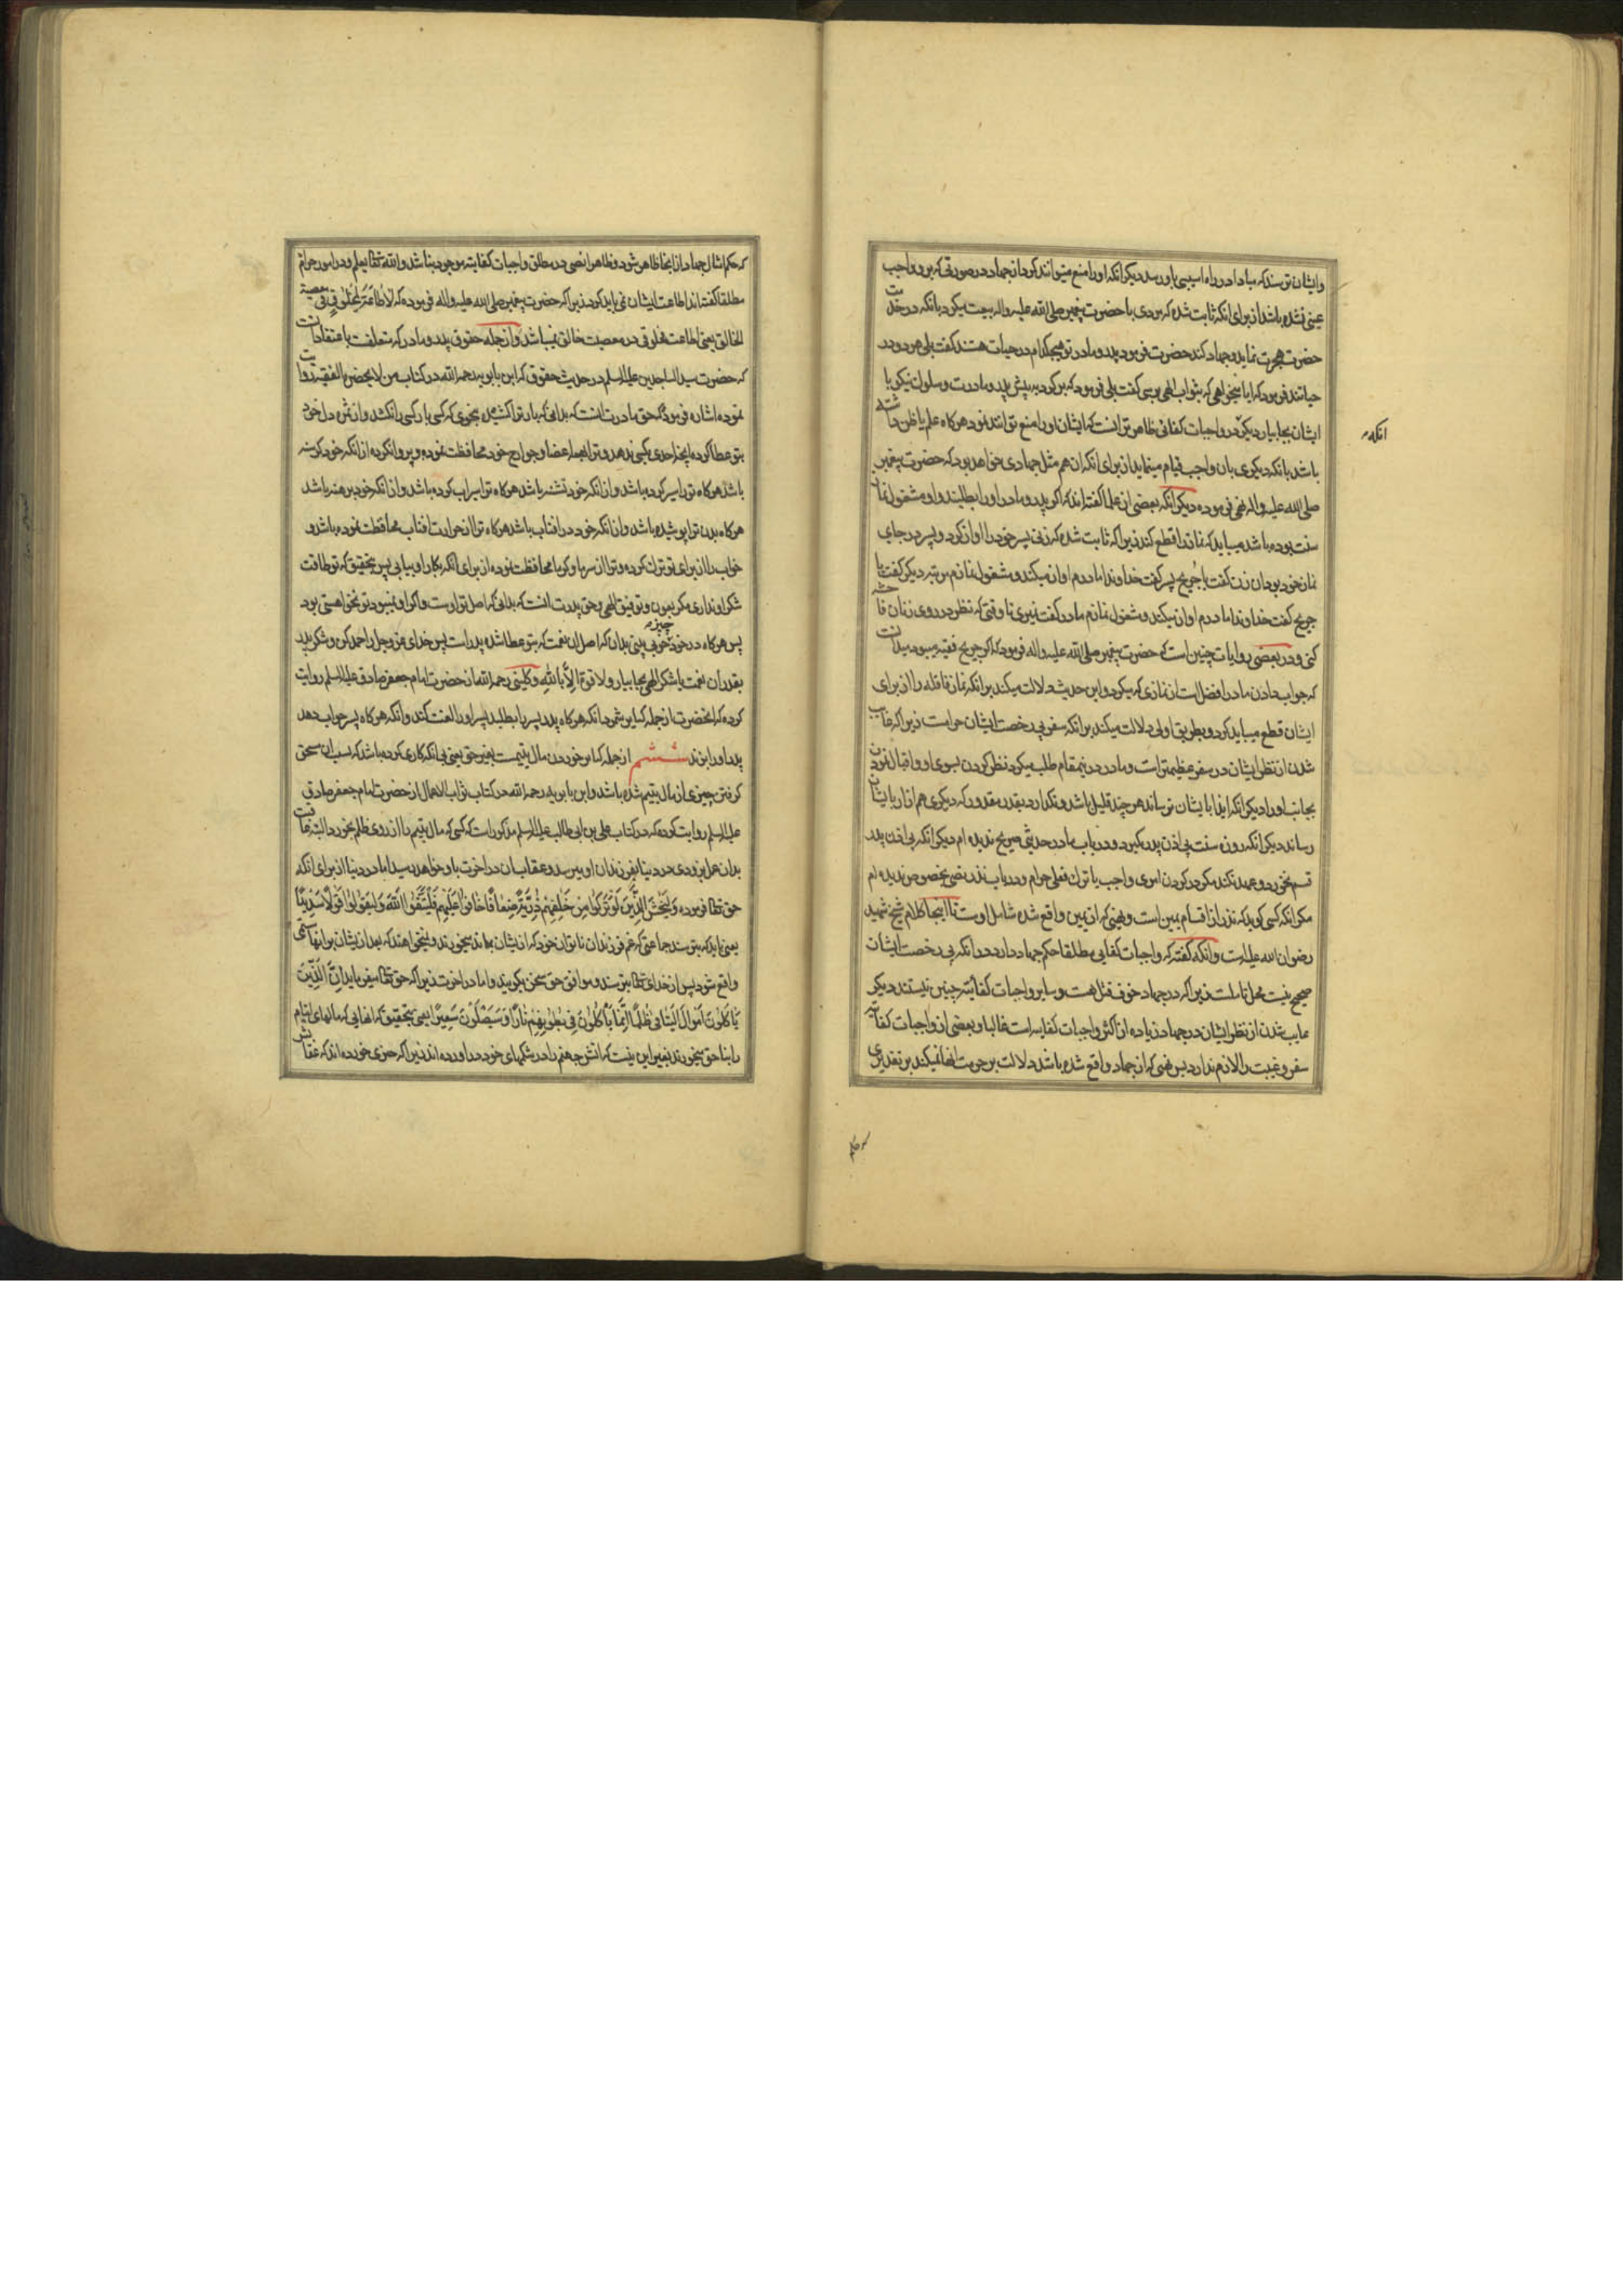 وایشان ترسند که مبادا در راه اسیبی باو رسد دیگر انکه او را منع میتوانند کرد از جهاد در صورتی که برو واجب
عینی نشده باشد از برای انکه ثابت شده که مردی با حضرت پیغمبر صلی الله علیه واله بیعت میکرد بانکه در خدمت
حضرت هجرت نماید وجهاد کند حضرت فرمود پدر و مادر تو هیچکدام در حیات هستند گفت بلی هر دو در
حیاتند فرمود که ایا میخواهی که بثواب الهی برسی گفت بلی فرمود که برگرد به پیش پدر و مادرت وسلوک نیکو با
ایشان بجا بیار دیگر در واجبات کفائی ظاهر تر انست که ایشان او را منع توانند نمود هرگاه علم یا ظن داشته
انکه
باشد بانکه دیگری بان واجب قیام مینماید از برای انکه ان هم مثل جهادی خواهد بود که حضرت پیغمبر
صلی الله علیه واله نهی فرموده دیگر انکه بعضی از علما گفته اند که اگر پدر و مادر او را بطلبند و او مشغول نماز
سنت بوده باشد میباید که نماز را قطع کند زیرا که ثابت شده که زنی پسر خود را اواز کرد و پسر در جای
نماز خود بود ان زن گفت یا جریج پسر گفت خداوندا مادرم اواز میکند و مشغول نمازم مرتبه دیگر گفت یا
جریج گفت خداوندا مادرم اواز میکند و مشغول نمازم مادر گفت نمیری تا وقتی که نظر در روی زنان فاحشه
کنی و در بعضی روایات چنین است که حضرت پیغمبر صلی الله علیه واله فرمود که اگر جریج فقیه میبود میدانست
که جواب دادن مادر افضل است از نمازی که میکرد و این حدیث دلالت میکند بر انکه نماز نافله را از برای
ایشان قطع میباید کرد و بطریق اولی دلالت میکند بر انکه سفر بی رخصت ایشان حرامست زیرا که غایب
شدن از نظر ایشان در سفر عظیمتر است و مادر در ینمقام طلب میکرد نظر کردن بسوی او و اقبال نمودن
بجانب او را دیگر انکه ایذا بایشان نرساند هر چند قلیل باشد و نگذارد بقدر مقدور که دیگری هم ازار بایشان
رساند دیگر انکه روزه سنت بی اذن پدر نگیرد و در باب مادر حدیثی صریح ندیده ام دیگر انکه بی اذن پدر
قسم نخورد و عهد نکند مگر در کردن امری واجب یا ترک فعلی حرام و در باب نذر نصی بخصوص ندیده ام
مگر انکه کسی گوید که نذر از اقسام یمین است و نهیی که از یمین واقع شده شامل اوست تا اینجا کلام شیخ شهید
رضوان الله علیه است وانکه گفته که واجبات کفایی مطلقا حکم جهاد دارد در انکه بی رخصت ایشان
صحیح نیست محل تاملست زیرا که در جهاد خوف قتل هست و سایر واجبات کفائیه چنین نیستند دیگر
غایب شدن از نظر ایشان در جهاد زیاده از اکثر واجبات کفایه است غالبا و بعضی از واجبات کفائیه
سفر و غیبت را لازم ندارد پس نهیی که از جهاد واقع شده باشد دلالت بر حرمت انها نمیکند بر تقدیری
که حکم امثال جهاد از انجا ظاهر شود و ظاهرا نصی در مطلق واجبات کفایته موجود نباشد والله تعالی یعلم و در امور حرام
مطلقا گفته اند اطاعت ایشان نمی باید کرد زیرا که حضرت پیغمبر صلی الله علیه واله فرموده که لا طاعة لمخلوق فی معصیة
الخالق یعنی اطاعت مخلوقی در معصیت خالق نمیباشد و از جمله حقوق پدر و مادر که متعلقست باعتقاد انست
که حضرت سید الساجدین علیه السلم در حدیث حقوق که ابن بابویه رحمه الله در کتاب من لا یحضره الفقیه روایت
نموده اشاره فرموده که حق مادرت انست که بدانی که بار ترا کشیده بنحوی که کسی بار کسی را نکشد و از ثمره دل خود
بتو عطا کرده انچه احدی بکسی ندهد و ترا بجمیع اعضا و جوارح خود محافظت نموده و پروا نکرده از انکه خود گرسنه
باشد هرگاه تو را سیر کرده باشد و از انکه خود تشنه باشد هرگاه ترا سیراب کرده باشد و از انکه خود برهنه باشد
هرگاه بدن ترا پوشیده باشد و از انکه خود در افتاب باشد هرگاه ترا از حرارت افتاب محافظت نموده باشد و
خواب را از برای تو ترک کرده و ترا از سرما و گرما محافظت نموده از برای انکه بکار او بیایی پس بتحقیق که تو طاقت
شکر او نداری مگر بعون و توفیق الهی و حق پدرت انست که بدانی که اصل تو اوست و اگر او نمیبود تو نخواهستی بود
پس هرگاه در خود چیز خوبی بینی بدان که اصل ان نعمت که بتو عطا شده پدر است پس خدای عز و جل را حمد کن و شکر پدر
بقدر ان نعمت با شکر الهی بجا بیار ولا قوة الا بالله وکلینی رحمه الله از حضرت امام جعفر صادق علیه السلم روایت
کرده که انحضرت از جمله کبایر شمرد انکه هرگاه پدر پسر را بطلبد پسر او را لعنت کند و انکه هرگاه پسر جواب دهد
پدر او را بزند ششم از جمله کبایر خوردن مال یتیمست بغیر حق یعنی بی انکه کاری کرده باشد که بسبب ان مستحق
گرفتن چیزی از مال یتیم شده باشد و ابن بابویه رحمه الله در کتاب ثواب الاعمال از حضرت امام جعفر صادق
علیه السلم روایت کرده که در کتاب علی بن ابی طالب علیه السلم مذکور است که کسی که مال یتیم را از روی ظلم بخورد البته عاقبت
بدان عمل بزودی در دنیا بفرزندان او میرسد و عقاب ان در اخرت باو خواهد رسید اما در دنیا از برای انکه
حق تعالی فرموده ولیخش الذین لو ترکوا من خلفهم ذریة ضعافا خافوا علیهم فلیتقوا الله ولیقولوا قولا سدیدا
یعنی باید که بترسند جماعتی که غم فرزندان ناتوان خود که از یشان بماند میخورند و نمیخواهند که بعد از یشان بر انها ستمی
واقع شود پس از خدای تعالی بترسند و موافق حق سخن بگویند و اما در اخرت زیرا که حق تعالی میفرماید ان الذین
یاکلون اموال الیتامی ظلما انما یاکلون فی بطونهم نارا وسیصلون سعیرا یعنی بتحقیق که انهایی که مالهای ایتام
را بنا حق میخورند بغیر این نیست که اتش جهنم را در شکمهای خود در اورده اند زیرا که چیزی خورده اند که عقابش